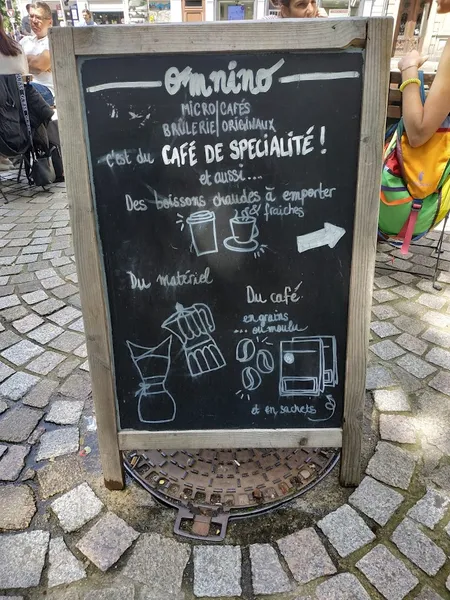 omnino
MICRO | CAFÉS
BRÛLERIE | ORIGINAUX
c'est du CAFÉ DE SPECIALITÉ !
et aussi...
Des boissons chaudes à emporter
& fraîches
Du matériel
Du café
en grains
... ou moulu
et en sachets